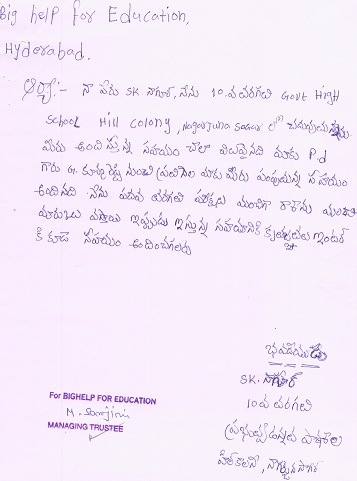 Big help for Education,
Hyderabad.
ఆర్య:- నా పేరు SK. నాగూర్, నేను 10 వ తరగతి Govt High
School Hill Colony, Nagarjuna Sagar లో చదువుతున్నాను.
మీరు అందిస్తున్న సహాయం చాలా విలువైనది మాకు P.d
గారు G. నుండి ప్రతినెల మాకు మీరు పంపుతున్న సహాయం
అందినది. నేను పదవ తరగతి పరీక్షలు మంచిగా రాశాను మంచి
మార్కులు వస్తాయి ఇప్పుడు ఇస్తున్న సహాయానికి కృతజ్ఞతలు ఇంటర్
కి కూడ సహాయం అందించగలరు
భవదీయుడు
SK. నాగూర్
10 వ తరగతి
ప్రభుత్వ పాఠశాల
హిల్ కాలని, నాగార్జున సాగర్
For BIGHELP FOR EDUCATION
MANAGING TRUSTEE